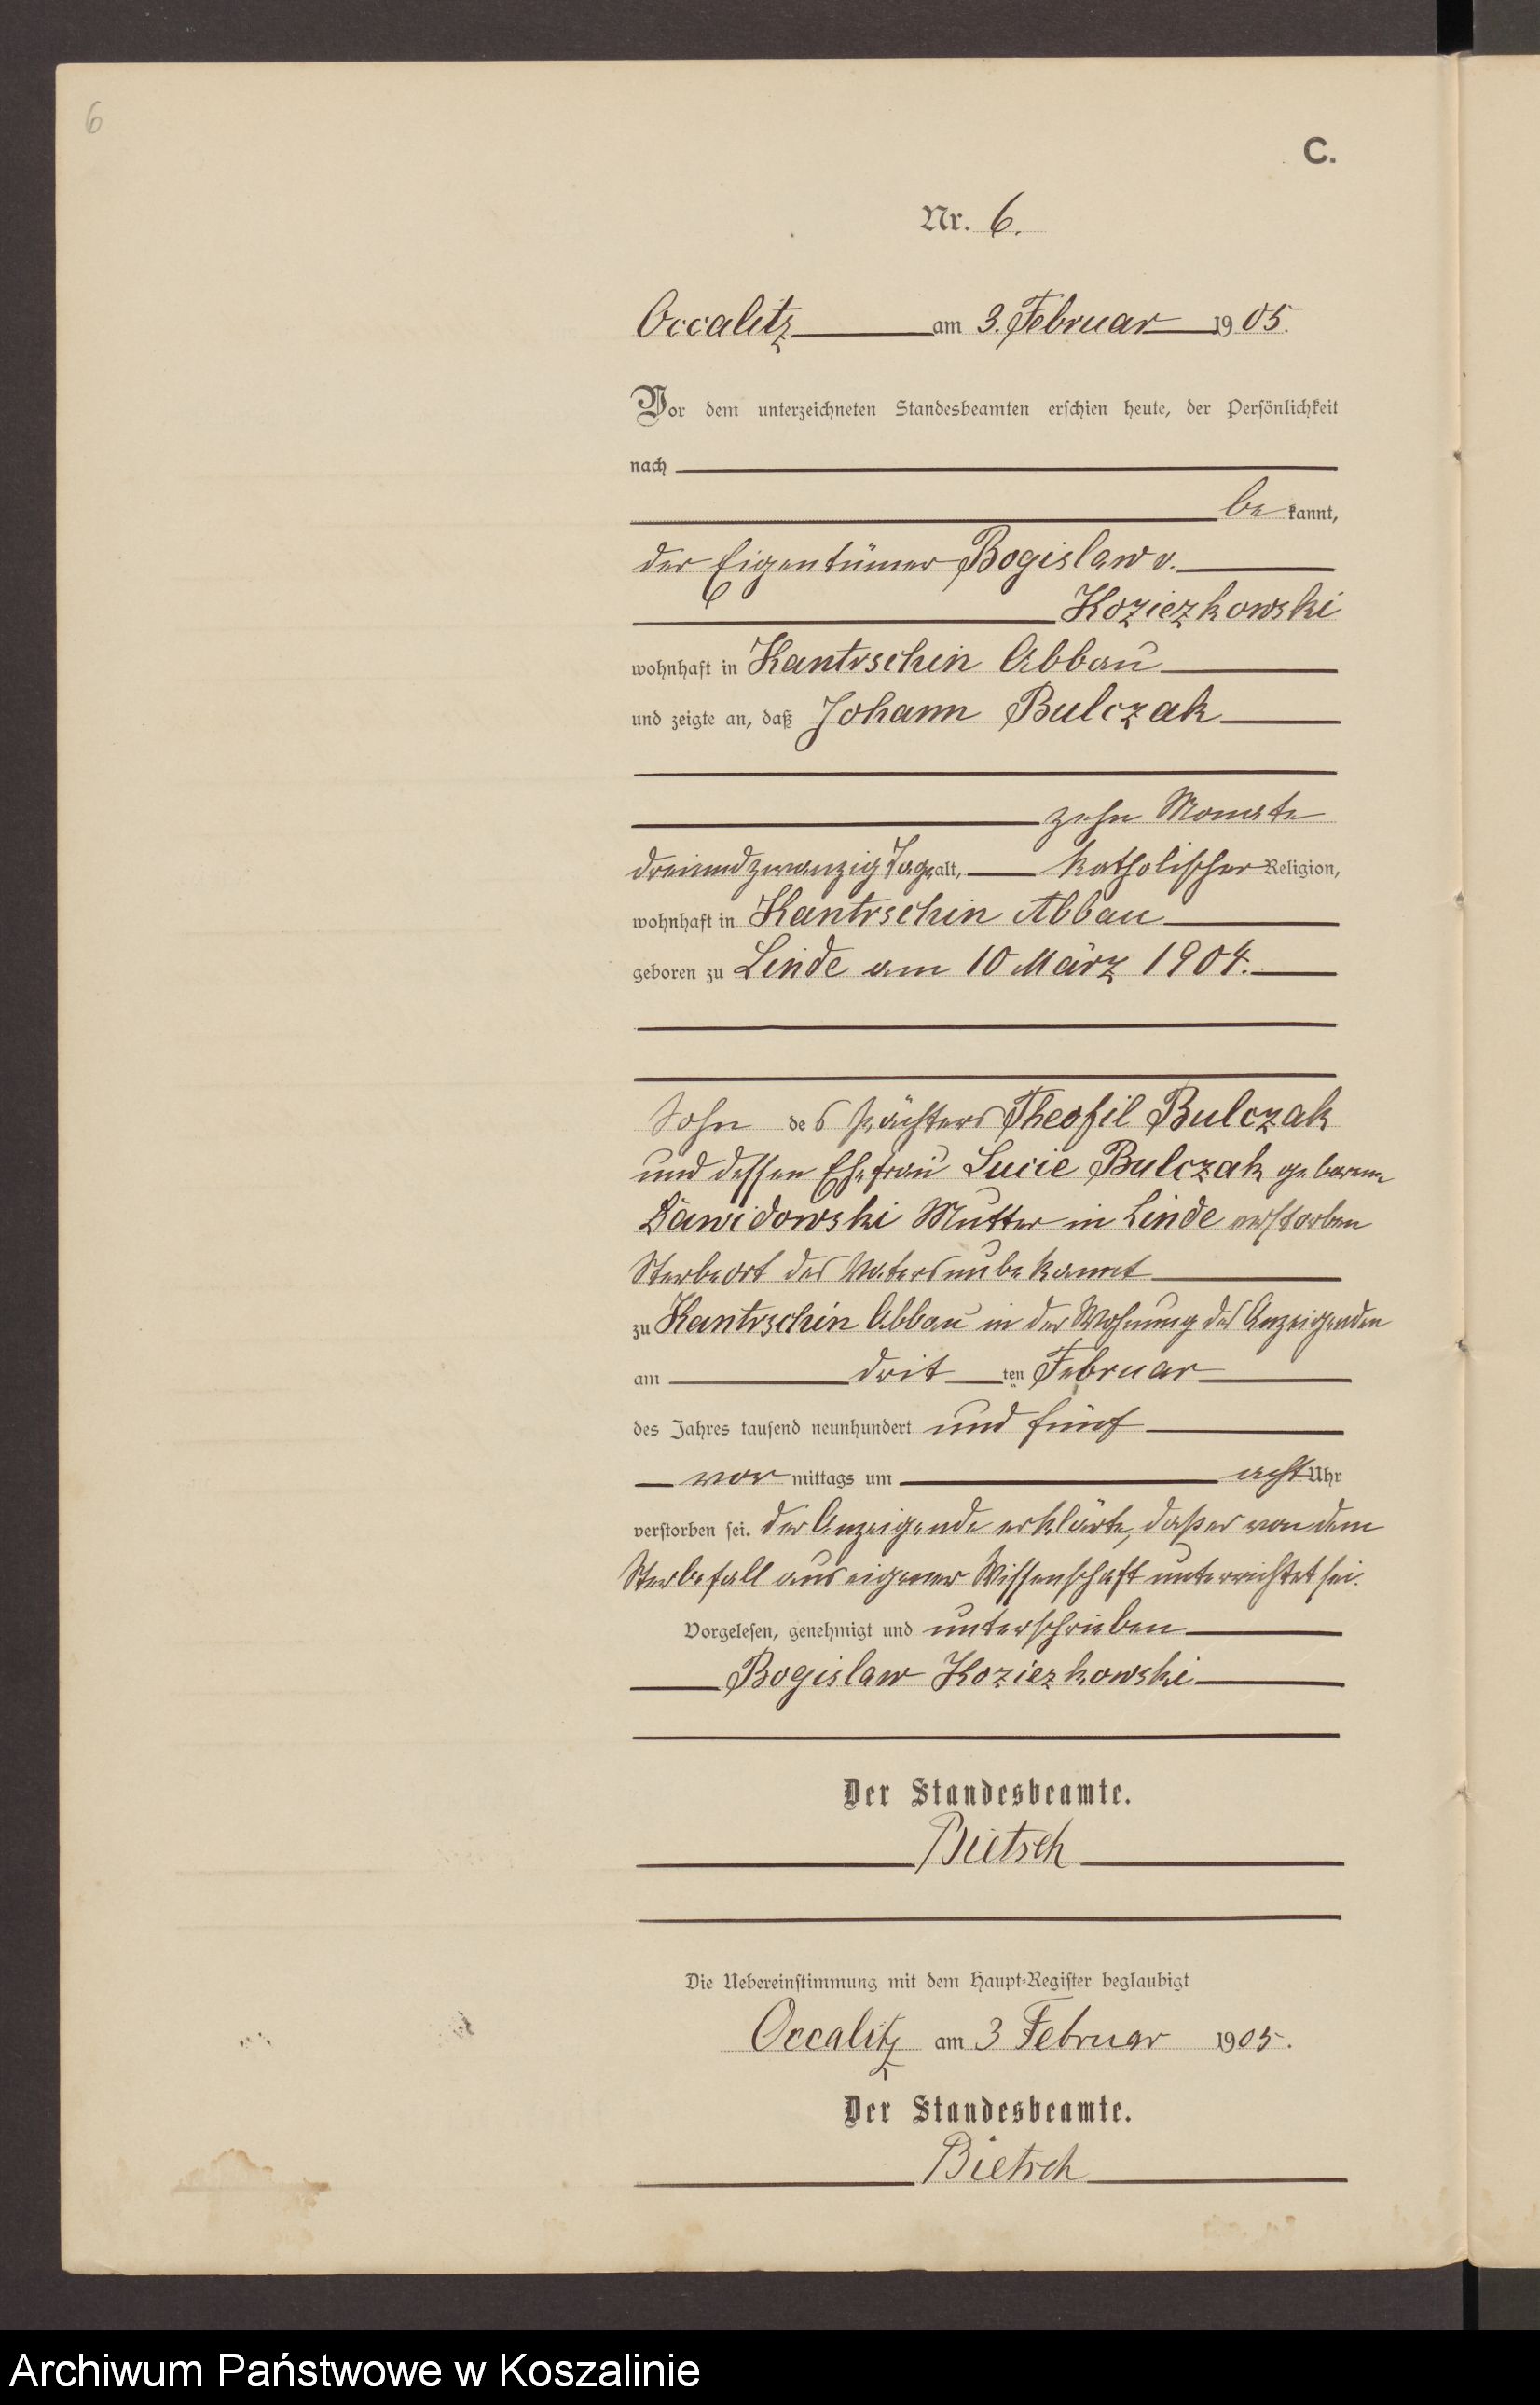 6
C.
Nr. 6.
Occalitz am 3. Februar 1905.
Vor dem unterzeichneten Standesbeamten erschien heute, der Persönlichkeit
nach
be kannt,
der Eigentümer Bogislaw v.
Koziezkowski
wohnhaft in Kantrschin Abbau
und zeigte an, daß Johann Bulczak
zehn Monate
dreiundzwanzig Tage alt, katholischer Religion,
wohnhaft in Kantrschin Abbau
geboren zu Linde am 10 März 1904.
Sohn des Pächters Theofil Bulczak
und dessen Ehefrau Lucie Bulczak geborene
Dawidowski Mutter in Linde verstorben
Sterbeort des Vaters unbekannt
zu Kantrschin Abbau in der Wohnung des Anzeigenden
am drit ten Februar
des Jahres tausend neunhundert und fünf
vor mittags um acht Uhr
verstorben sei. Der Anzeigende erklärte, daß er von dem
Sterbefall aus eigener Wissenschaft unterrichtet sei.
Vorgelesen, genehmigt und unterschrieben
Bogislaw Koziezkowski
Der Standesbeamte.
Bietsch
Die Uebereinstimmung mit dem Haupt-Register beglaubigt
Occalitz am 3 Februar 1905.
Der Standesbeamte.
Bietsch
Archiwum Państwowe w Koszalinie